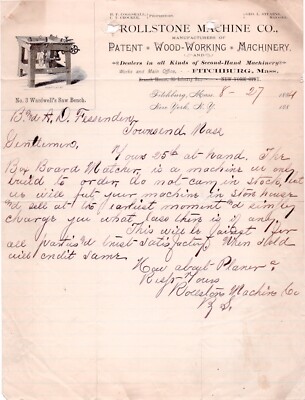 ROLLSTONE MACHINE CO.,
MANUFACTURERS OF
PATENT • WOOD-WORKING • MACHINERY,
AND
Dealers in all Kinds of Second-Hand Machinery
Works and Main Office, FITCHBURG, Mass.
No. 3 Wardwell's Saw Bench.
Fitchburg, Mass. 8-27 188
New York, N. Y. 188
B & A. D. Fessenden
Townsend Mass
Gentlemen,
Yours 25th at hand. The
Box Board Matcher, is a machine we only
build to order do not carry in stock, but
we will put your machine in store house
and sell at the earliest moment and simply
charge you what loss there is if any.
This will be fairest for
all parties trust satisfactory. When sold
will credit same.
How about Planer?
Resp Yours
Rollstone Machine Co